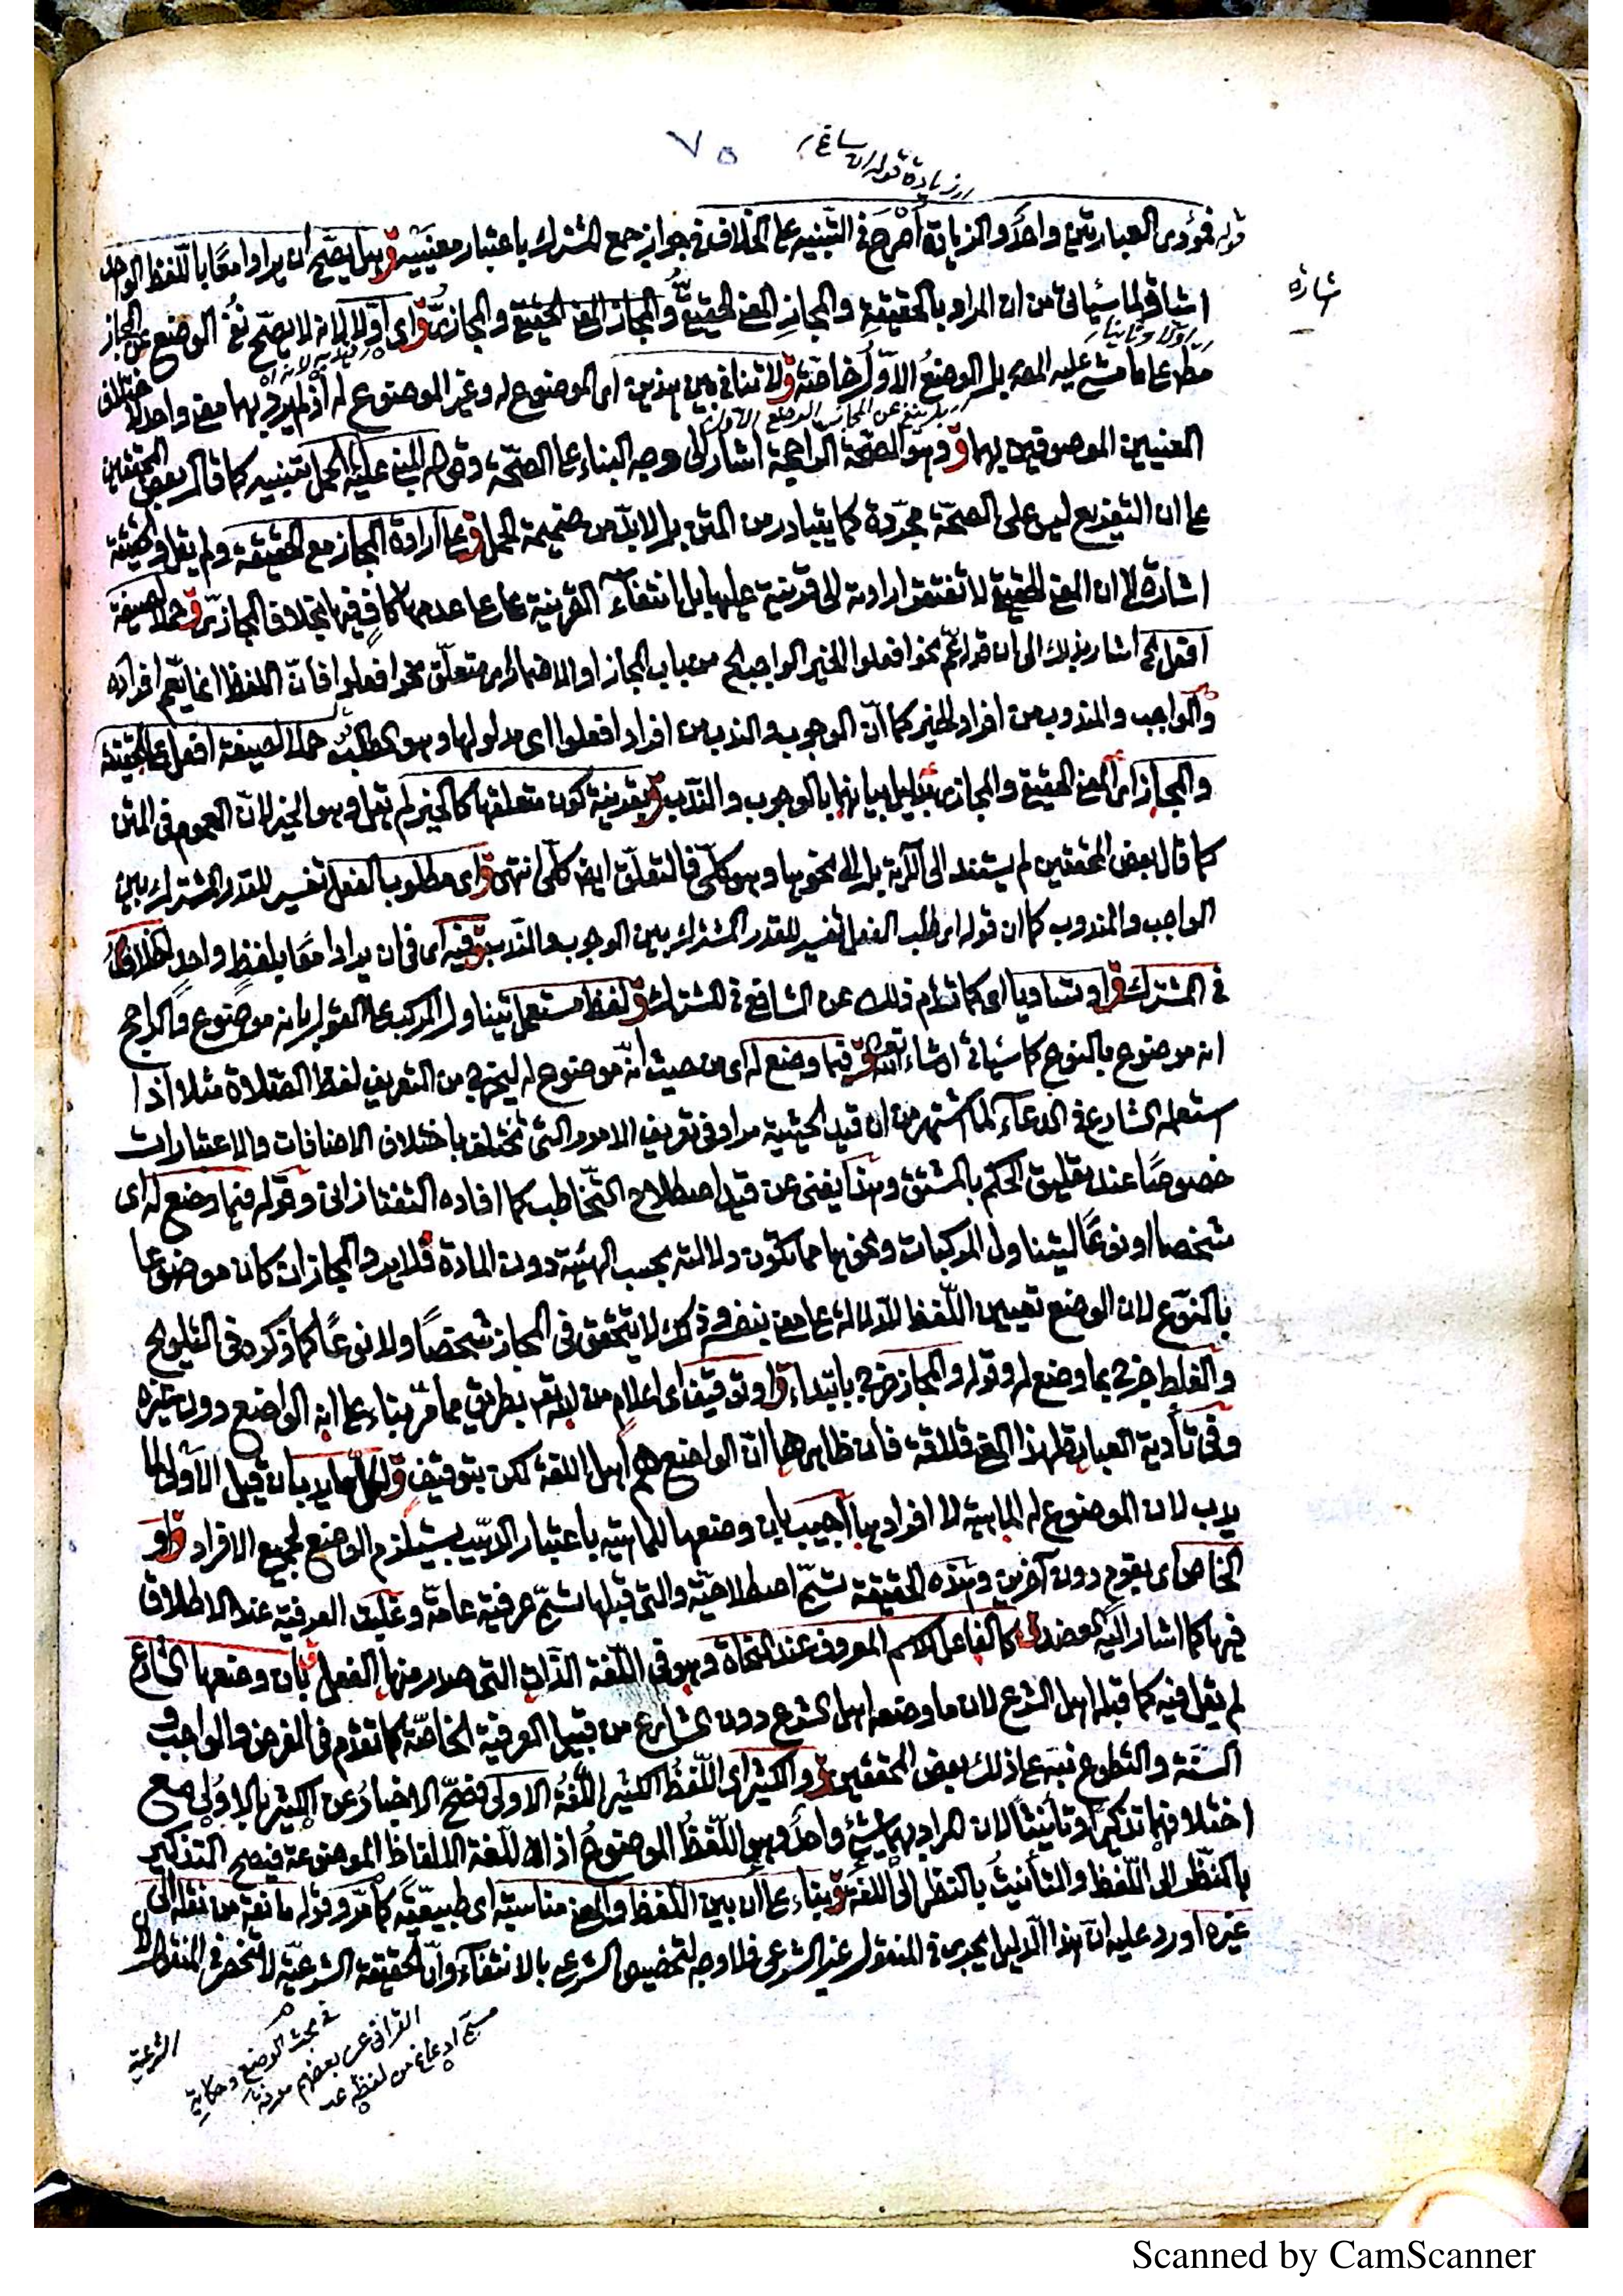 ٧٥
زيادة قوله ان ساغ
قوله فمؤدى العبارتين واحد والزيادة اصرح في التنبيه على الخلاف في جواز جمع المشترك باعتبار معنييه ق وهل يصح ان يرادا معًا باللفظ الواحد
اشارة
اشا ق لما سيأتي من ان المراد بالحقيقة والمجاز المعنى الحقيقي والمجاز المعنى الحقيقي والمجازي ق اي اولا لانه لا يصح نفي الوضع عن المجاز
اولا وثانيا
مط على ما مشى عليه المصـ بل الوضع الاول خاصة ق ولا تنافي بين هذين اي الموضوع له وغير الموضوع له اذ لم يرد بهما معنى واحد
بل ينفي عن المجاز الوضع الاول
المعنيين الموصوفين بهما ق وهو الصحة الراجحة اشار الى وجه البناء على الصحة وقوله المبني عليه الحمل تنبيه كما قال بعض المحققين
على ان التفريع ليس على الصحة مجردة كما يتبادر من المتن بل لا بد من ضميمة الحمل ق على ارادة المجاز مع الحقيقة ولم يقل وحقيقة
اشارة الى ان المعنى الحقيقي لا تفتقر ارادته الى قرينة عليها بل انتفاء القرينة على عدمها كاف فيها بخلاف المجازي ق حملا لصيغة
افعل الخ اشار بذلك الى ان قولهم نحو افعلوا الخير الواجب الخ من باب المجاز او الاضمار من متعلق نحو افعلوا فان اللفظ انما يعم افراده
والواجب والمندوب من افراد الخير كما ان الوجوب والندب من افراد افعلوا اي مدلولها وهو الطلب ق حملا لصيغة افعل على الحقيقة
والمجاز اي المعنى الحقيقي والمجازي بدليل بيانهما بالوجوب والندب ق بقرينة كون متعلقها كالخير لم يقل وهو الخير لان العموم في المتن
كما قال بعض المحققين لم يستند الى الآية بل الى نحوها وهو كلي فالتعلق ايضا كلي انتهى ق اي مطلوب الفعل تفسير للقدر المشترك بين
الواجب والمندوب كما ان قوله اي طلب الفعل تفسير للقدر المشترك بين الوجوب والندب ق فيه اي في ان يرادا معًا بلفظ واحد الخلاف
في المشترك ق او تساويا اي كما تقدم ذلك عن الشافعي في المشترك ق لفظ مستعمل يتناول المركب على القول بانه موضوع والراجح
انه موضوع بالنوع كما سيأتي ان شاء الله تعالى ق فيما وضع له اي من حيث انه موضوع له ليخرج من التعريف لفظ الصلاة مثلا اذا
استعمله الشارع في الدعاء لما اشتهر من ان قيد الحيثية مراد في تعريف الامور التي تختلف باختلاف الاضافات والاعتبارات
خصوصًا عند تعليق الحكم بالمشتق وهذا يغني عن قيد اصطلاح التخاطب كما افاده التفتازاني وقوله فيما وضع له اي
شخصا او نوعًا ليتناول المركبات ونحوها مما تكون دلالته بحسب الهيئة دون المادة فلا يرد المجاز ان كان موضوعا
بالنوع لان الوضع تعيين اللفظ للدلالة على معنى بنفسه وذلك لا يتحقق في المجاز شخصًا ولا نوعًا كما ذكره في التلويح
والغلط خرج بما وضع له وقوله والمجاز خرج بابتداء ق او توقيفا اي اعلام من الله تعـ بطريق مما مر بناء على انه الواضع دون غيره
وفي تأدية العبارة لهذا المعنى قلاقة فان ظاهرها ان الواضع هم اهل اللغة لكن بتوقيف ق لكل ما يدب بان قيل الاولى لما
يدب لان الموضوع له الماهية لا افرادها اجيب بان وضعها للماهية باعتبار الدبيب يستلزم الوضع لجميع الافراد ق او
الخاص اي بقوم دون آخرين وهذه الحقيقة تسمى اصطلاحية والتي قبلها تسمى عرفية عامة وغلبت العرفية عند الاطلاق
فيها كما اشار اليه العضد ق كالفاعل للاسم المعروف عند النحاة وهو في اللغة الذات التي صدر منها الفعل ق بان وضعها الشارع
لم يقل فيه كما قبله اهل الشرع لان ما وضعه اهل الشرع دون الشارع من قبيل العرفية الخاصة كما تقدم في الفرض والواجب و
السنة والتطوع نبه على ذلك بعض المحققين ق والكثير اي اللفظ الكثير اللغة الاولى فصح الاخبار عن الكثير بالاولى مع
اختلافهما تذكيرًا وتأنيثًا لان المراد بهما شيء واحد وهو اللفظ الموضوع اذ اللغة الالفاظ الموضوعة فيصح التذكير
بالنظر الى اللفظ والتأنيث بالنظر الى اللغة ق بناء على ان بين اللفظ والمعنى مناسبة اي طبيعية كما مر وقوله مانعة من نقله الى
غيره اورد عليه ان هذا الدليل يجري في المنقول غير الشرعي فلا وجه لتخصيص الشرعي بالانتفاء وان الحقيقة الشرعية لا تنحصر في المنقول
الشرعية
في بحث الوضع وحكاية
القرافي عن بعضهم معرفة